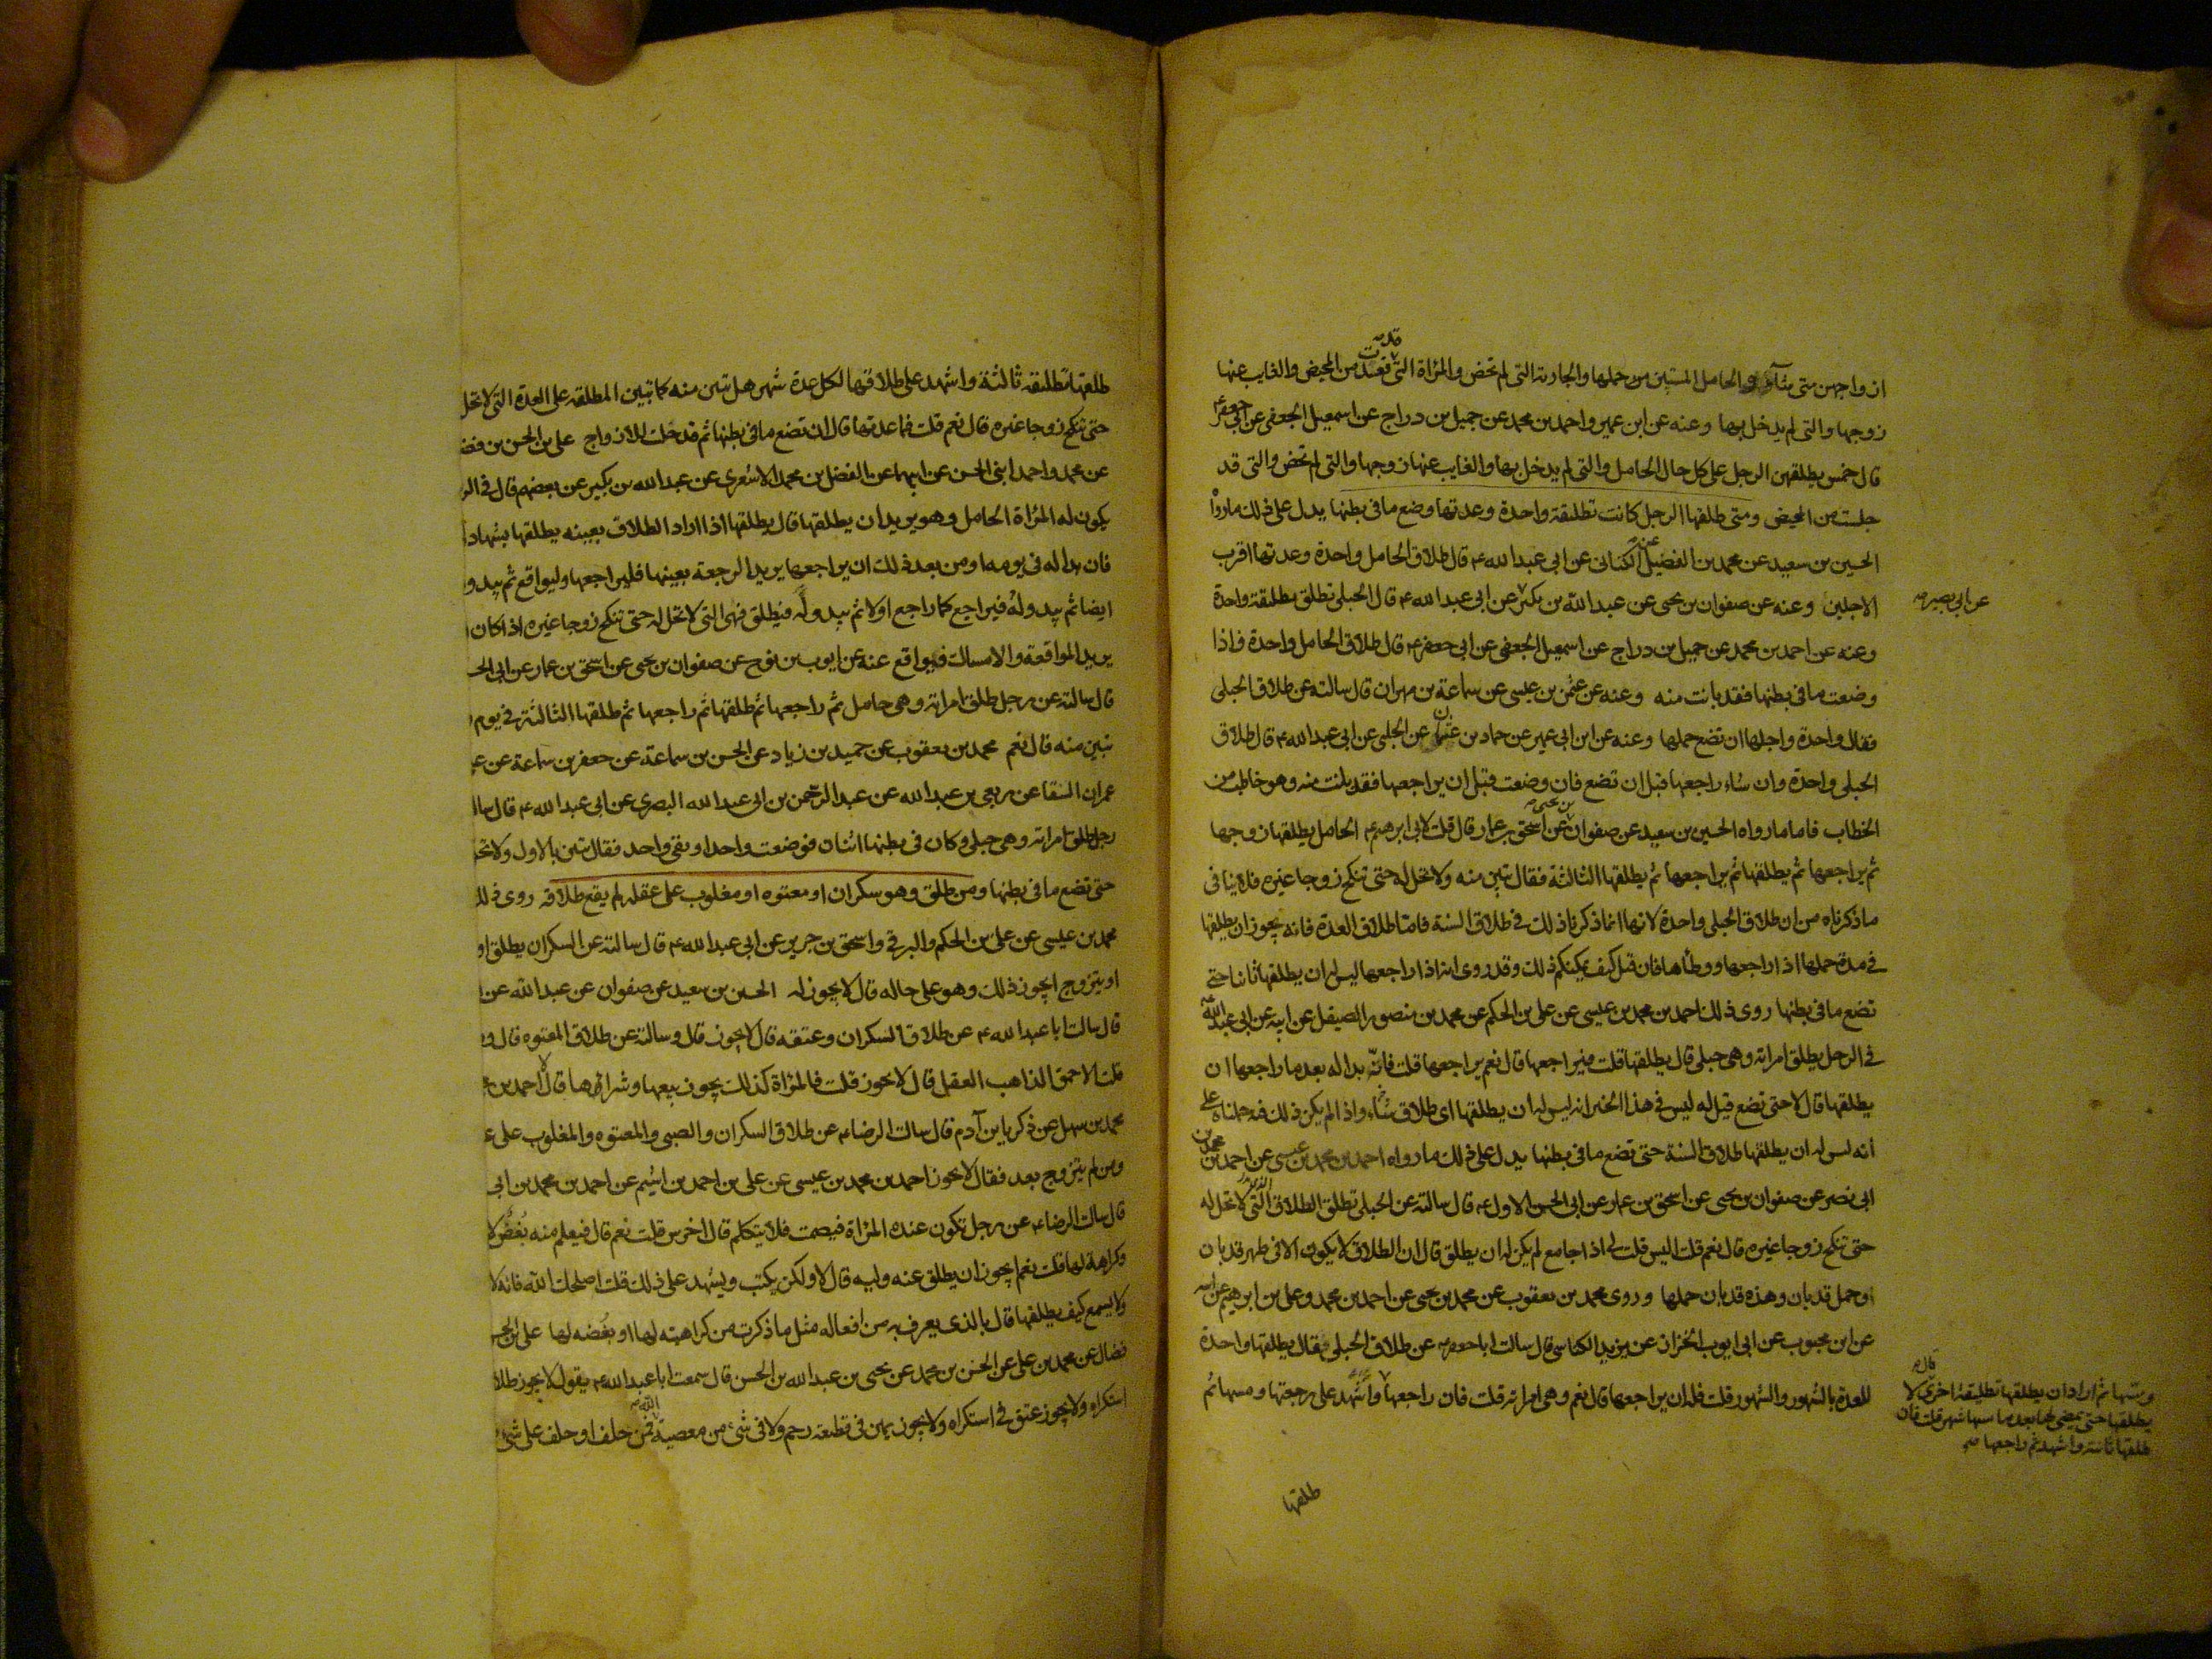 قد صه
ازواجهن متى شاؤا والحامل المستبين حملها والجارية التى لم تحض والمراة التى قعدت من المحيض والغايب عنها
زوجها والتى لم يدخل بها وعنه عن ابن عمير واحمد بن محمد عن جميل بن دراج عن اسمعيل الجعفى عن ابى جعفر ع
قال خمس يطلقهن الرجل على كل حال الحامل والتى لم يدخل بها والغايب عنها زوجها والتى لم تحض والتى قد
جلست من المحيض ومتى طلقها الرجل كانت تطليقة واحدة وعدتها وضع ما فى بطنها يدل على ذلك ما رواه
الحسين بن سعيد عن محمد بن الفضيل عن الكنانى عن ابى عبد الله ع قال طلاق الحامل واحدة وعدتها اقرب
الاجلين وعنه عن صفوان بن يحيى عن عبد الله بن بكير عن ابى عبد الله ع قال الحبلى تطلق تطليقة واحدة
عن ابى بصير صه
وعنه عن احمد بن محمد عن جميل بن دراج عن اسمعيل الجعفى عن ابى جعفر ع قال طلاق الحامل واحدة فاذا
وضعت ما فى بطنها فقد بانت منه وعنه عن عثمن بن عيسى عن سماعة بن مهران قال سالته عن طلاق الحبلى
فقال واحدة واجلها ان تضع حملها وعنه عن ابن ابى عمير عن حماد بن عثمن عن الحلبى عن ابى عبد الله ع قال طلاق
الحبلى واحدة وان شاء راجعها قبل ان تضع فان وضعت قبل ان يراجعها فقد بانت منه وهو خاطب من
الخطاب فاما ما رواه الحسين بن سعيد عن صفوان بن يحيى عن اسحق بن عمار قال قلت لابى ابرهيم ع الحامل يطلقها زوجها
ثم يراجعها ثم يطلقها ثم يراجعها ثم يطلقها الثالثة فقال تبين منه ولا تحل له حتى تنكح زوجا غيره فلا ينافى
ما ذكرناه من ان طلاق الحبلى واحدة لانها انما ذكرنا ذلك فى طلاق السنة فاما طلاق العدة فانه يجوز ان يطلقها
فى مدة حملها اذا راجعها ووطأها فان قيل كيف يمكنكم ذلك وقد روى انه اذا راجعها ليس له ان يطلقها ثانيا حتى
تضع ما فى بطنها روى ذلك احمد بن محمد بن عيسى عن على بن الحكم عن محمد بن منصور الصيقل عن ابيه عن ابى عبد الله ع
فى الرجل يطلق امراته وهى حبلى قال يطلقها قلت فيراجعها قال نعم يراجعها قلت فانه بدا له بعد ما راجعها ان
يطلقها قال لا حتى تضع قيل له ليس فى هذا الخبر انه ليس له ان يطلقها اى طلاق شاء واذا لم يكن ذلك فيه حملناه على
انه ليس له ان يطلقها طلاق السنة حتى تضع ما فى بطنها يدل على ذلك ما رواه احمد بن محمد بن عيسى عن احمد بن محمد بن
ابى نصر عن صفوان بن يحيى عن اسحق بن عمار عن ابى الحسن الاول ع قال سالته عن الحبلى تطلق الطلاق التى لا تحل له
حتى تنكح زوجا غيره قال نعم قلت اليس قلت لى اذا جامع لم يكن له ان يطلق قال ان الطلاق لا يكون الا فى طهر قد بان
او حمل قد بان وهذه قد بان حملها وروى محمد بن يعقوب عن محمد بن يحيى عن احمد بن محمد وعلى بن ابرهيم عن ابيه
عن ابن محبوب عن ابى ايوب الخزاز عن يزيد الكناسى قال سالت ابا جعفر ع عن طلاق الحبلى فقال يطلقها واحدة
للعدة بالشهور والشهور قلت فله ان يراجعها قال نعم وهى امراته قلت فان راجعها واشهد على رجعتها ومسها ثم
ومسها ثم اراد ان يطلقها تطليقة اخرى قال لا
يطلقها حتى يمضى لها بعد ما مسها شهر قلت فان
طلقها ثانية واشهد ثم راجعها صه
طلقها
طلقها تطليقة ثالثة واشهد على طلاقها لكل عدة شهر هل تبين منه كما تبين المطلقة على العدة التى لا تحل
حتى تنكح زوجا غيره قال نعم قلت فما عدتها قال ان تضع ما فى بطنها ثم قد حلت للازواج على بن الحسن بن فضال
عن محمد واحمد ابنى الحسن عن ابيهما عن الفضل بن محمد الاشعرى عن عبد الله بن بكير عن بعضهم قال فى الر
يكون له المراة الحامل وهو يريد ان يطلقها قال يطلقها اذا اراد الطلاق بعينه يطلقها بشهادة
فان بدا له فى يومه او من بعد ذلك ان يراجعها يريد الرجعة بعينها فليراجعها وليواقع ثم يبدو
ايضا ثم يبدو له فيراجع كما راجع اولا ثم يبدو له فيطلق فهى التى لا تحل له حتى تنكح زوجا غيره اذا كان
يريد المواقعة والامساك فيواقع عنه عن ايوب بن نوح عن صفوان بن يحيى عن اسحق بن عمار عن ابى الحسن
قال سالته عن رجل طلق امراته وهى حامل ثم راجعها ثم طلقها ثم راجعها ثم طلقها الثالثة فى يوم
تبين منه قال نعم محمد بن يعقوب عن حميد بن زياد عن الحسن بن سماعة عن جعفر بن سماعة عن على
عمران السقا عن ربعى بن عبد الله عن عبد الرحمن بن ابى عبد الله البصرى عن ابى عبد الله ع قال سالته
رجل طلق امراته وهى حبلى وكان فى بطنها اثنان فوضعت واحدا وبقى واحد فقال تبين بالاول ولا تحل
حتى تضع ما فى بطنها ومن طلق وهو سكران او معتوه او مغلوب على عقله لم يقع طلاقه روى ذلك
محمد بن عيسى عن على بن الحكم والبرقى واسحق بن جرير عن ابى عبد الله ع قال سالته عن السكران يطلق او
او يتزوج ايجوز ذلك وهو على حاله قال لا يجوز له الحسين بن سعيد عن صفوان عن عبد الله عن
قال سالت ابا عبد الله ع عن طلاق السكران وعتقه قال لا يجوز قال وسالته عن طلاق المعتوه قال وما
قلت الاحمق الذاهب العقل قال لا يجوز قلت فالمراة كذلك يجوز بيعها وشراؤها قال لا احمد بن
محمد بن سهل عن زكريا بن آدم قال سالت الرضا ع عن طلاق السكران والصبى والمعتوه والمغلوب على
ومن لم يتزوج بعد فقال لا يجوز احمد بن محمد بن عيسى عن على بن احمد بن اشيم عن احمد بن محمد بن ابى
قال سالت الرضا ع عن رجل تكون عنده المراة فيصمت فلا يتكلم قال اخرس قلت نعم قال فيعلم منه بغض لا
وكراهة لها قلت نعم ايجوز ان يطلق عنه وليه قال لا ولكن يكتب ويشهد على ذلك قلت اصلحك الله فانه لا
ولا يسمع كيف يطلقها قال بالذى يعرف به من افعاله مثل ما ذكرت من كراهته لها او بغضه لها على بن الحسن
فضال عن محمد بن على عن الحسن بن محمد عن يحيى بن عبد الله بن الحسن قال سمعت ابا عبد الله ع يقول لا يجوز طلاق
استكراه ولا يجوز عتق فى استكراه ولا يجوز يمين فى قطيعة رحم ولا فى شئ من معصية الله فمن حلف او حلف على شئ